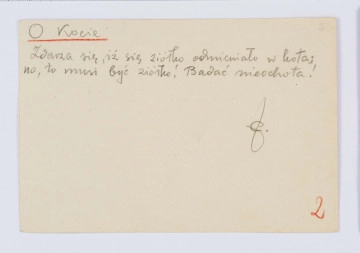 O Kocie
Zdarza się, iż się ziółko odmieniało w kota,
no, to musi być ziółko! Badać nieochota!
2